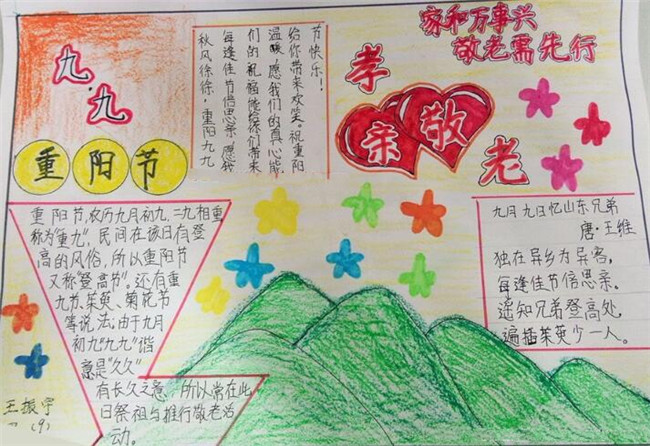 九.九
重阳节
秋风徐徐，重阳九九
每逢佳节倍思亲，愿我
们的祝福能给你们带来
温暖，愿我们的真心能
给你带来欢笑。祝重阳
节快乐！
家和万事兴
敬老需先行
孝亲敬老
重阳节，农历九月初九，二九相重
称为"重九"，民间在该日有登
高的风俗，所以重阳节
又称"登高节"。还有重
九节、茱萸、菊花节
等说法；由于九月
初九"九九"谐
意是"久久"
有长久之意，所以常在此
日祭祖与推行敬老活
动。
九月九日忆山东兄弟
唐·王维
独在异乡为异客，
每逢佳节倍思亲。
遥知兄弟登高处，
遍插茱萸少一人。
王振
(9)